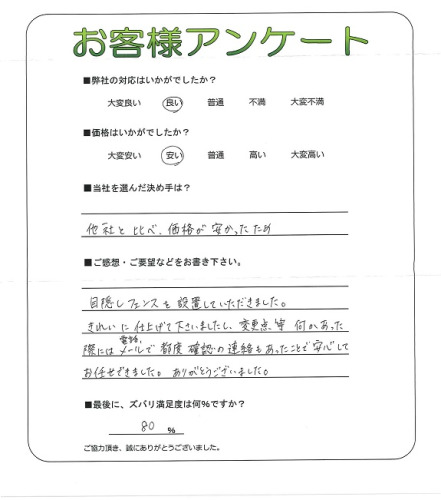 お客様アンケート
■弊社の対応はいかがでしたか？
大変良い 良い 普通 不満 大変不満
■価格はいかがでしたか？
大変安い 安い 普通 高い 大変高い
■当社を選んだ決め手は？
他社と比べ、価格が安かったため
■ご感想・ご要望などをお書き下さい。
目隠しフェンスを設置していただきました。
きれいに仕上げて下さいましたし、変更点等何かあった
電話、
際にはメールで都度確認の連絡もあったことで安心して
お任せできました。ありがとうございました。
■最後に、ズバリ満足度は何%ですか？
80 %
ご協力頂き、誠にありがとうございました。